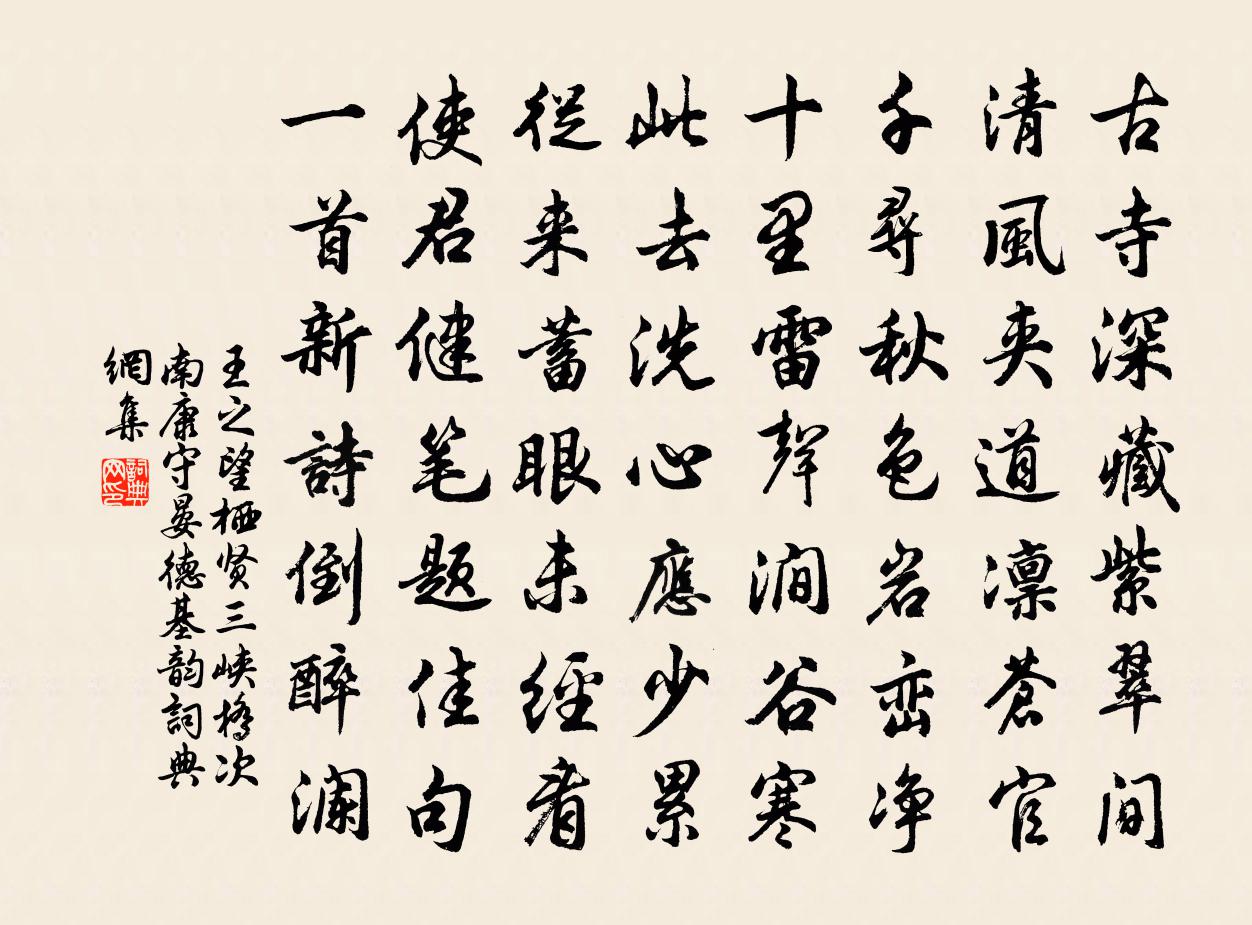 古寺深藏紫翠間
清風夾道凛蒼官
千尋秋色岩巒净
十里雷聲澗谷寒
此去洗心應少累
從来蓄眼未經看
使君健笔題佳句
一首新詩倒醉瀾
王之望栖贤三峡橋次
南康守晏德基韵詞典
網集
詞典
网印